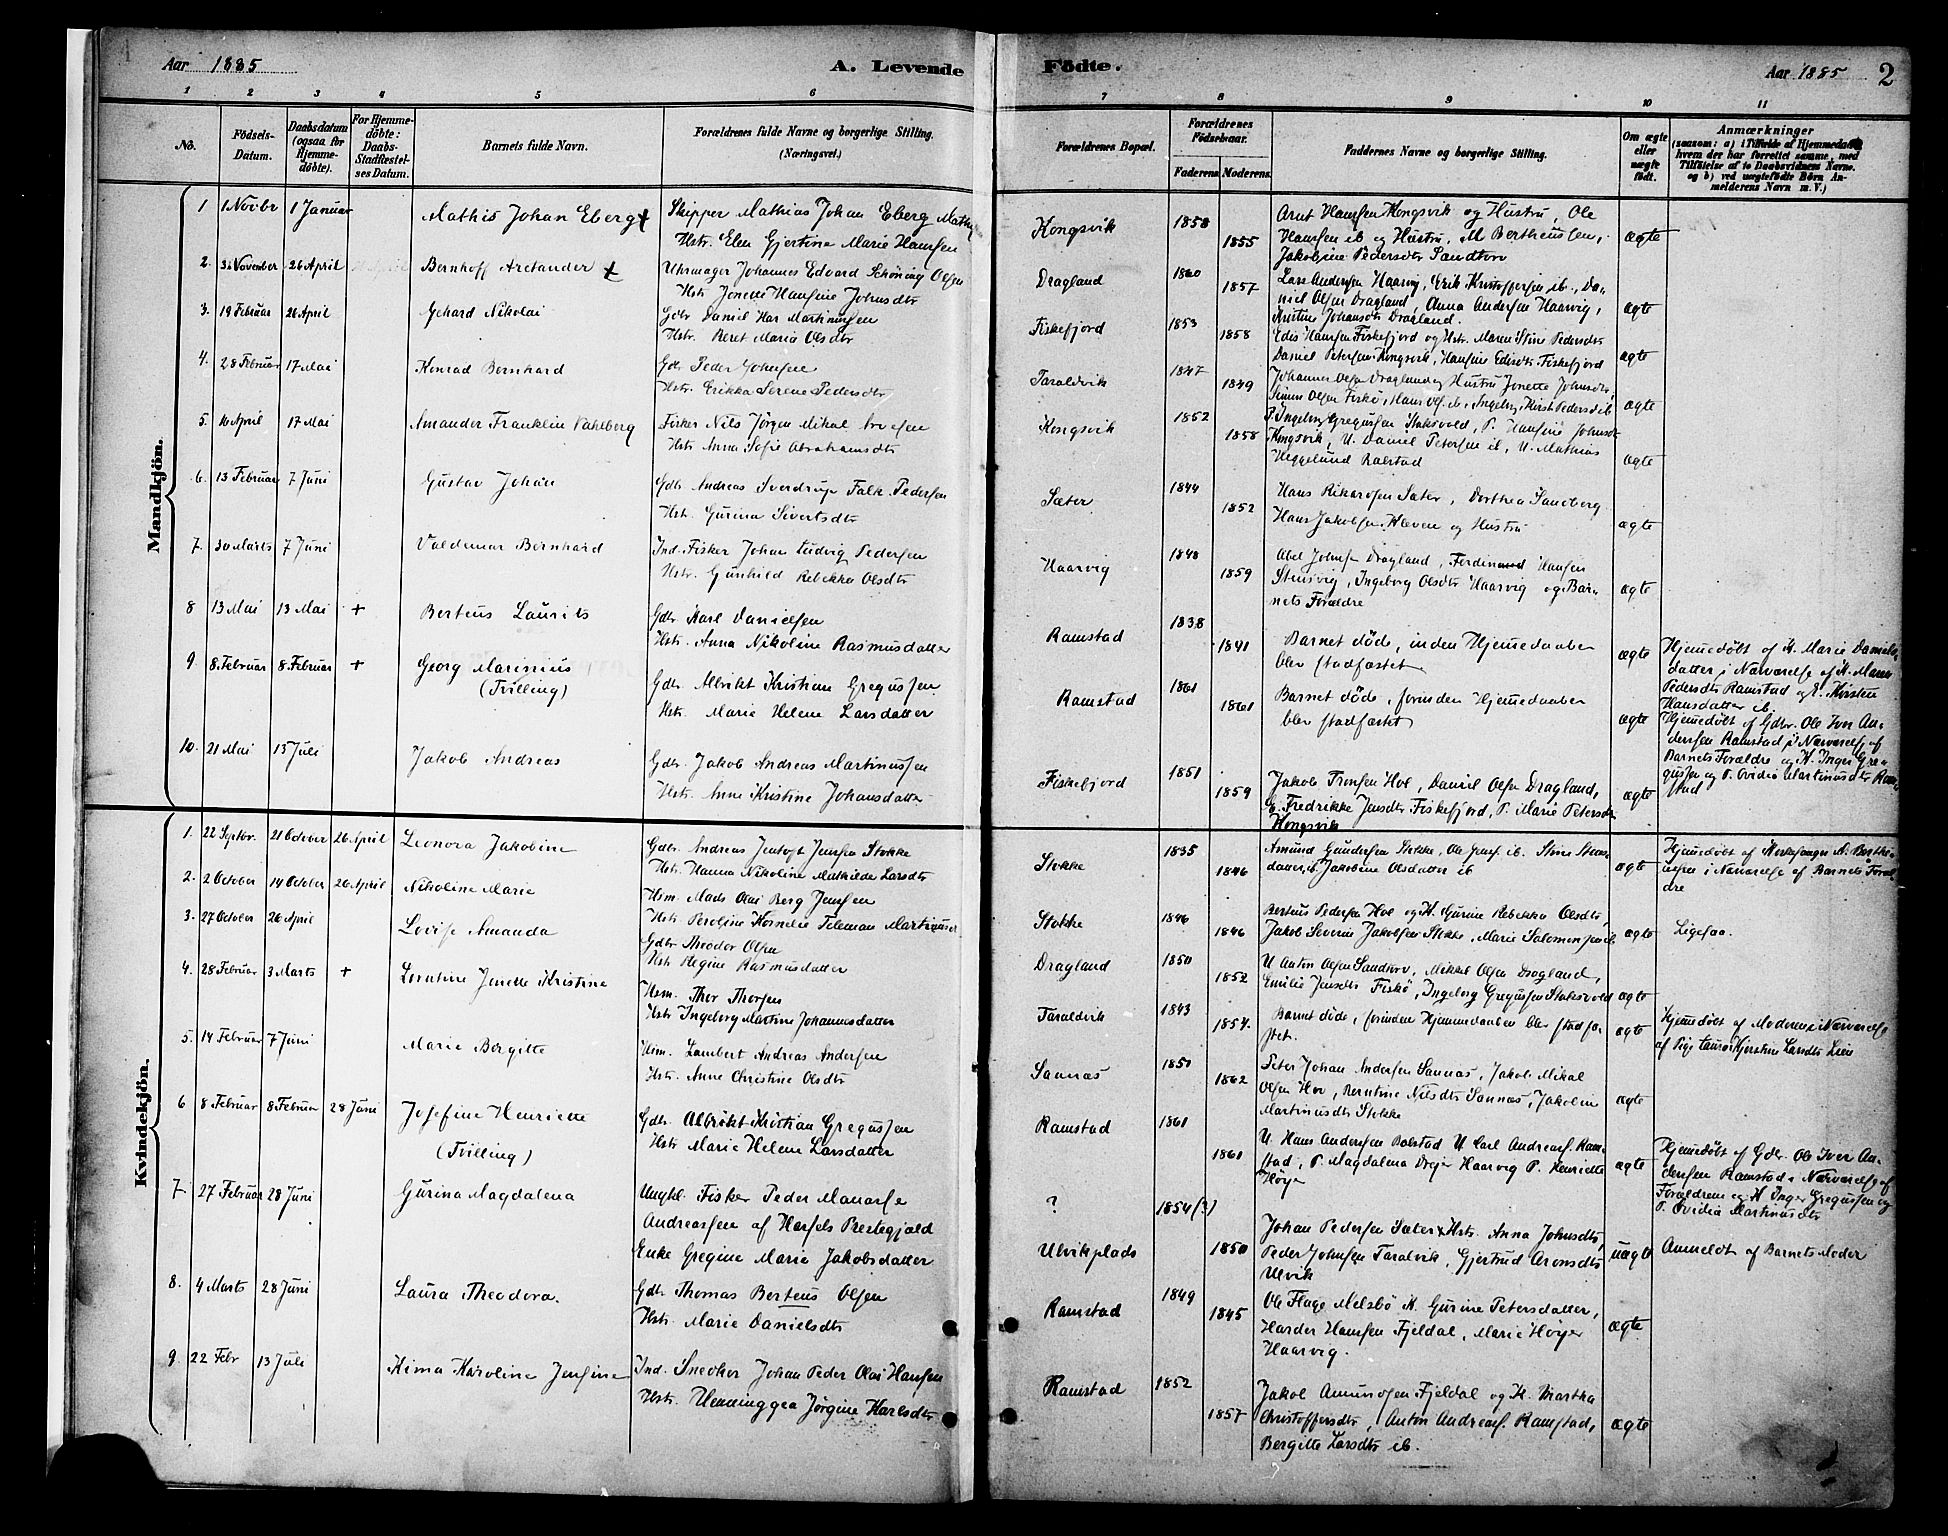 Aar 1885
A. Levende
Födte.
Aar 1885
2
1 2 3 4 5 6 7 8 9 10 11
No.
Födsels-
Datum.
Daabsdatum
(ogsaa for
Hjemme-
döbte).
For Hjemme-
döbte:
Daabs-
Stadfæstel-
ses Datum.
Barnets fulde Navn.
Forældrenes fulde Navne og borgerlige Stilling.
(Næringsvei.)
Forældrenes Bopæl.
Forældrenes
Födselsaar.
Faderens. Moderens.
Faddernes Navne og borgerlige Stilling.
Om ægte
eller
uægte
födt.
Anmærkninger
(saasom: a) i Tilfælde af Hjemmedaab
hvem der har forrettet samme, med
Tilföielse af to Daabsvidners Navne.
og b) ved uægtefödte Börn An-
melderens Navn m. V.)
Mandkjön.
1 1 Novbr 1 Januar Mathis Johan Eberg + Skipper Mathias Johan Eberg
Hstr. Elen Gjertine Marie Hansen
Kongsvik 1858 1855
Arnt Hansen Kongsvik og Hustru, Ole
Hansen ib og Hustru, M Bertheussen,
Jakobine Pedersdtr Sandtorv
ægte
2. November 26 April Bernhoff Aretander + Uhrmager Johannes Edvard Schöning Olsen
Hstr Jonette Hansine Johnsdtr
Dragland 1860 1857
Lars Andersen Haarvig, Erik Kristoffersen ib., Da-
niel Olsen Dragland, Anna Andersen Haarvig,
Kristine Johansdtr Dragland.
ægte
3. 19 Februar 26 April Gehard Nikolai Gdbr Daniel Martinussen
Hstr. Beret Maria Olsdtr
Fiskefjord 1853 1858
Edis Hansen Fiskefjord og Hstr. Maren Stine Pedersdtr
Daniel Petersen Kongsvik, Hansine Edisdtr Fiskefjord
ægte
4. 28 Februar 17 Mai Konrad Bernhard Gdb Peder Johnsen
Hstr. Erikka Serene Pedersdtr
Taraldvik 1847 1849
Johannes Olsen Dragland og Hustru Jonette Johnsdtr,
Simon Olsen Fiskö, Hans Ols. ib, Ingebr. Kirst. Pedersd ib
ægte
5. 16 April 17 Mai Amander Franklin Vahlberg Fisker Nils Jörgen Mikal
Hstr Anna Sofie Abrahamsdtr
Kongsvik 1852 1858
P. Ingebg Gregusen Stoksvold, P. Hansine Johnsdtr
Kongsvik, U. Daniel Petersen ib, U. Mathias
Heggelund Balstad
ægte
6. 13 Februar 7 Juni Gustav Johan Gdbr Andreas Sverdrup Falk Pedersen
Hstr. Gurina Sivertsdtr
Sæter 1844 1852
Hans Rikardsen Sæter, Dorthea Sandberg
Hans Jakobsen Kleven og Hustru
ægte
7. 30 Marts 7 Juni Valdemar Bernhard Ind. Fisker Johan Ludvig Pedersen
Hstr. Gunhild Rebekka Olsdtr
Haarvig 1848 1859
Abel Johnsen Dragland, Ferdinand Hansen
Stensvig, Ingeborg Olsdtr Haarvig og Bar-
nets Forældre
ægte
8 13 Mai 13 Mai + Berteus Laurits Gdbr Karl Danielsen
Hstr. Anna Nikoline Rasmusdatter
Ramstad 1838 1841
Barnet döde, inden Hjemmedaaben
blev stadfæstet
ægte
Hjemmedöbt af K. Marie Daniels-
datter i Nærværelse af K. Maren
Pedersdtr Ramstad og E. Kirsten
Hansdatter ib.
9. 8. Februar 8. Februar + Georg Marinius
(Tvilling)
Gdbr. Albrikt Kristian Gregussen
Hstr. Marie Helene Larsdatter
Ramstad 1861 1861
Barnet döde, forinden Hjemmedaaben
blev stadfæstet
ægte
Hjemmedöbt af Gdbr. Ole Iver An-
dersen Ramstad i Nærværelse af
Barnets Forældre og K. Inger Gre-
gussen og P. Ovidia Martinusdtr Ram-
stad
10. 21 Mai 13 Juli Jakob Andreas Gdbr. Jakob Andreas Martinussen
Hstr. Anne Kristine Johansdatter
Fiskefjord 1851 1859
Jakob Tronsen Hol, Daniel Olsen Dragland,
E. Fredrikke Jensdtr Fiskefjord, P. Marie Petersdtr
Kongsvik
ægte
Kvindekjön.
1. 22 Septbr. 21 October 26 April Leonora Jakobine Gdbr. Andreas Jentoft Jensen Stokke
Hstr. Hanna Nikoline Mathilde Larsdtr
Stokke 1835 1846
Amund Gundersen Stokke, Ole Jens. ib. Stine
datter ib. Jakobine Olsdatter ib
ægte
Hjemmedöbt af Kirkesanger A. Berthe-
ussen i Nærværelse af Barnets Foræl-
dre
2. 2 October 14 October 26 April Nikoline Marie Hsm Mads Olai Berg Jensen
Hstr. Peroline Kornelie Teleman Martinusd.
Stokke 1846 1846
Berteus Pedersen Hol og H. Gurine Rebekka Olsdtr,
Jakob Severin Jakobsen Stokke, Marie Salomonsen ib.
ægte
Ligesaa.
3. 27 October 26 April Lovise Amanda Gdbr Theodor Olsen
Hstr Regine Rasmusdatter
Dragland 1850 1852
U Anton Olsen Sandtorv, Mikkel Olsen Dragland,
Emilie Jensdtr Fiskö, Ingeborg Gregussen Stoksvold
ægte
4. 28 Februar 3 Marts + Lorntine Jenette Kristine Hsm. Thor Thorsen
Hstr Ingeborg Martine Johannesdatter
Taraldvik 1843 1854.
Barnet döde, forinden Hjemmedaaben blev stadfæ-
stet.
ægte
Hjemmedöbt af Moderen i Nærværelse
af Pige Laura Kjerstine Larsdtr Lien
5. 14 Februar 7 Juni Marie Bergitte Hsm. Lambert Andreas Andersen
Hstr. Anne Christine Olsdtr
Sannæs 1850 1862
Peter Johan Andersen Sannæs, Jakob Mikal
Olsen Hol, Berntine Nilsdtr Sannæs, Jakobine
Martinusdtr Stokke
ægte
6 8 Februar 8 Februar 28 Juni Josefine Henriette
(Tvilling)
Gdbr. Albrikt Kristian Gregussen
Hstr Marie Helene Larsdatter
Ramstad 1861 1861
U. Hans Andersen Balstad U Carl Andreas. Ram-
stad, P. Magdalena Dreje Haarvig P. Henriette
Höyer
ægte
Hjemmedöbt af Gdbr. Ole Iver An-
dersen Ramstad i Nærværelse af
Forældrene og K Inger Gregussen og
P. Ovidia Martinusdtr
7. 27 Februar 28 Juni Gurina Magdalena Ungkl. Fisker Peder Manasse
Andreassen af Hasfels Prestegjæld
Enke Gregine Marie Jakobsdatter
? 1854(?)
Ulvikplads 1850
Johan Pedersen Sæter & Hstr. Anna Johnsdtr,
Peder Johnsen Taralvik, Gjertrud Aronsdtr
Ulvik
uægte
Anmeldt af Barnets Moder
8. 4 Marts 28 Juni Laura Theodora. Gdbr Thomas Berteus Olsen
Hstr. Marie Danielsdtr
Ramstad 1849 1845
Ole Flage Melsbö K. Gurine Petersdatter,
Harder Hansen Fjeldal, Marie Höyer
Haarvig.
ægte
9. 22 Febr 13 Juli Kima Karoline Jensine Ind. Snedker Johan Peder Olai Hansen
Hstr. Henninggea Jörgine Karlsdtr
Ramstad 1852 1857
Jakob Amundsen Fjeldal og H. Martha
Christoffersdtr, Anton Andreas. Ramstad,
Bergitte Larsdtr ib.
ægte